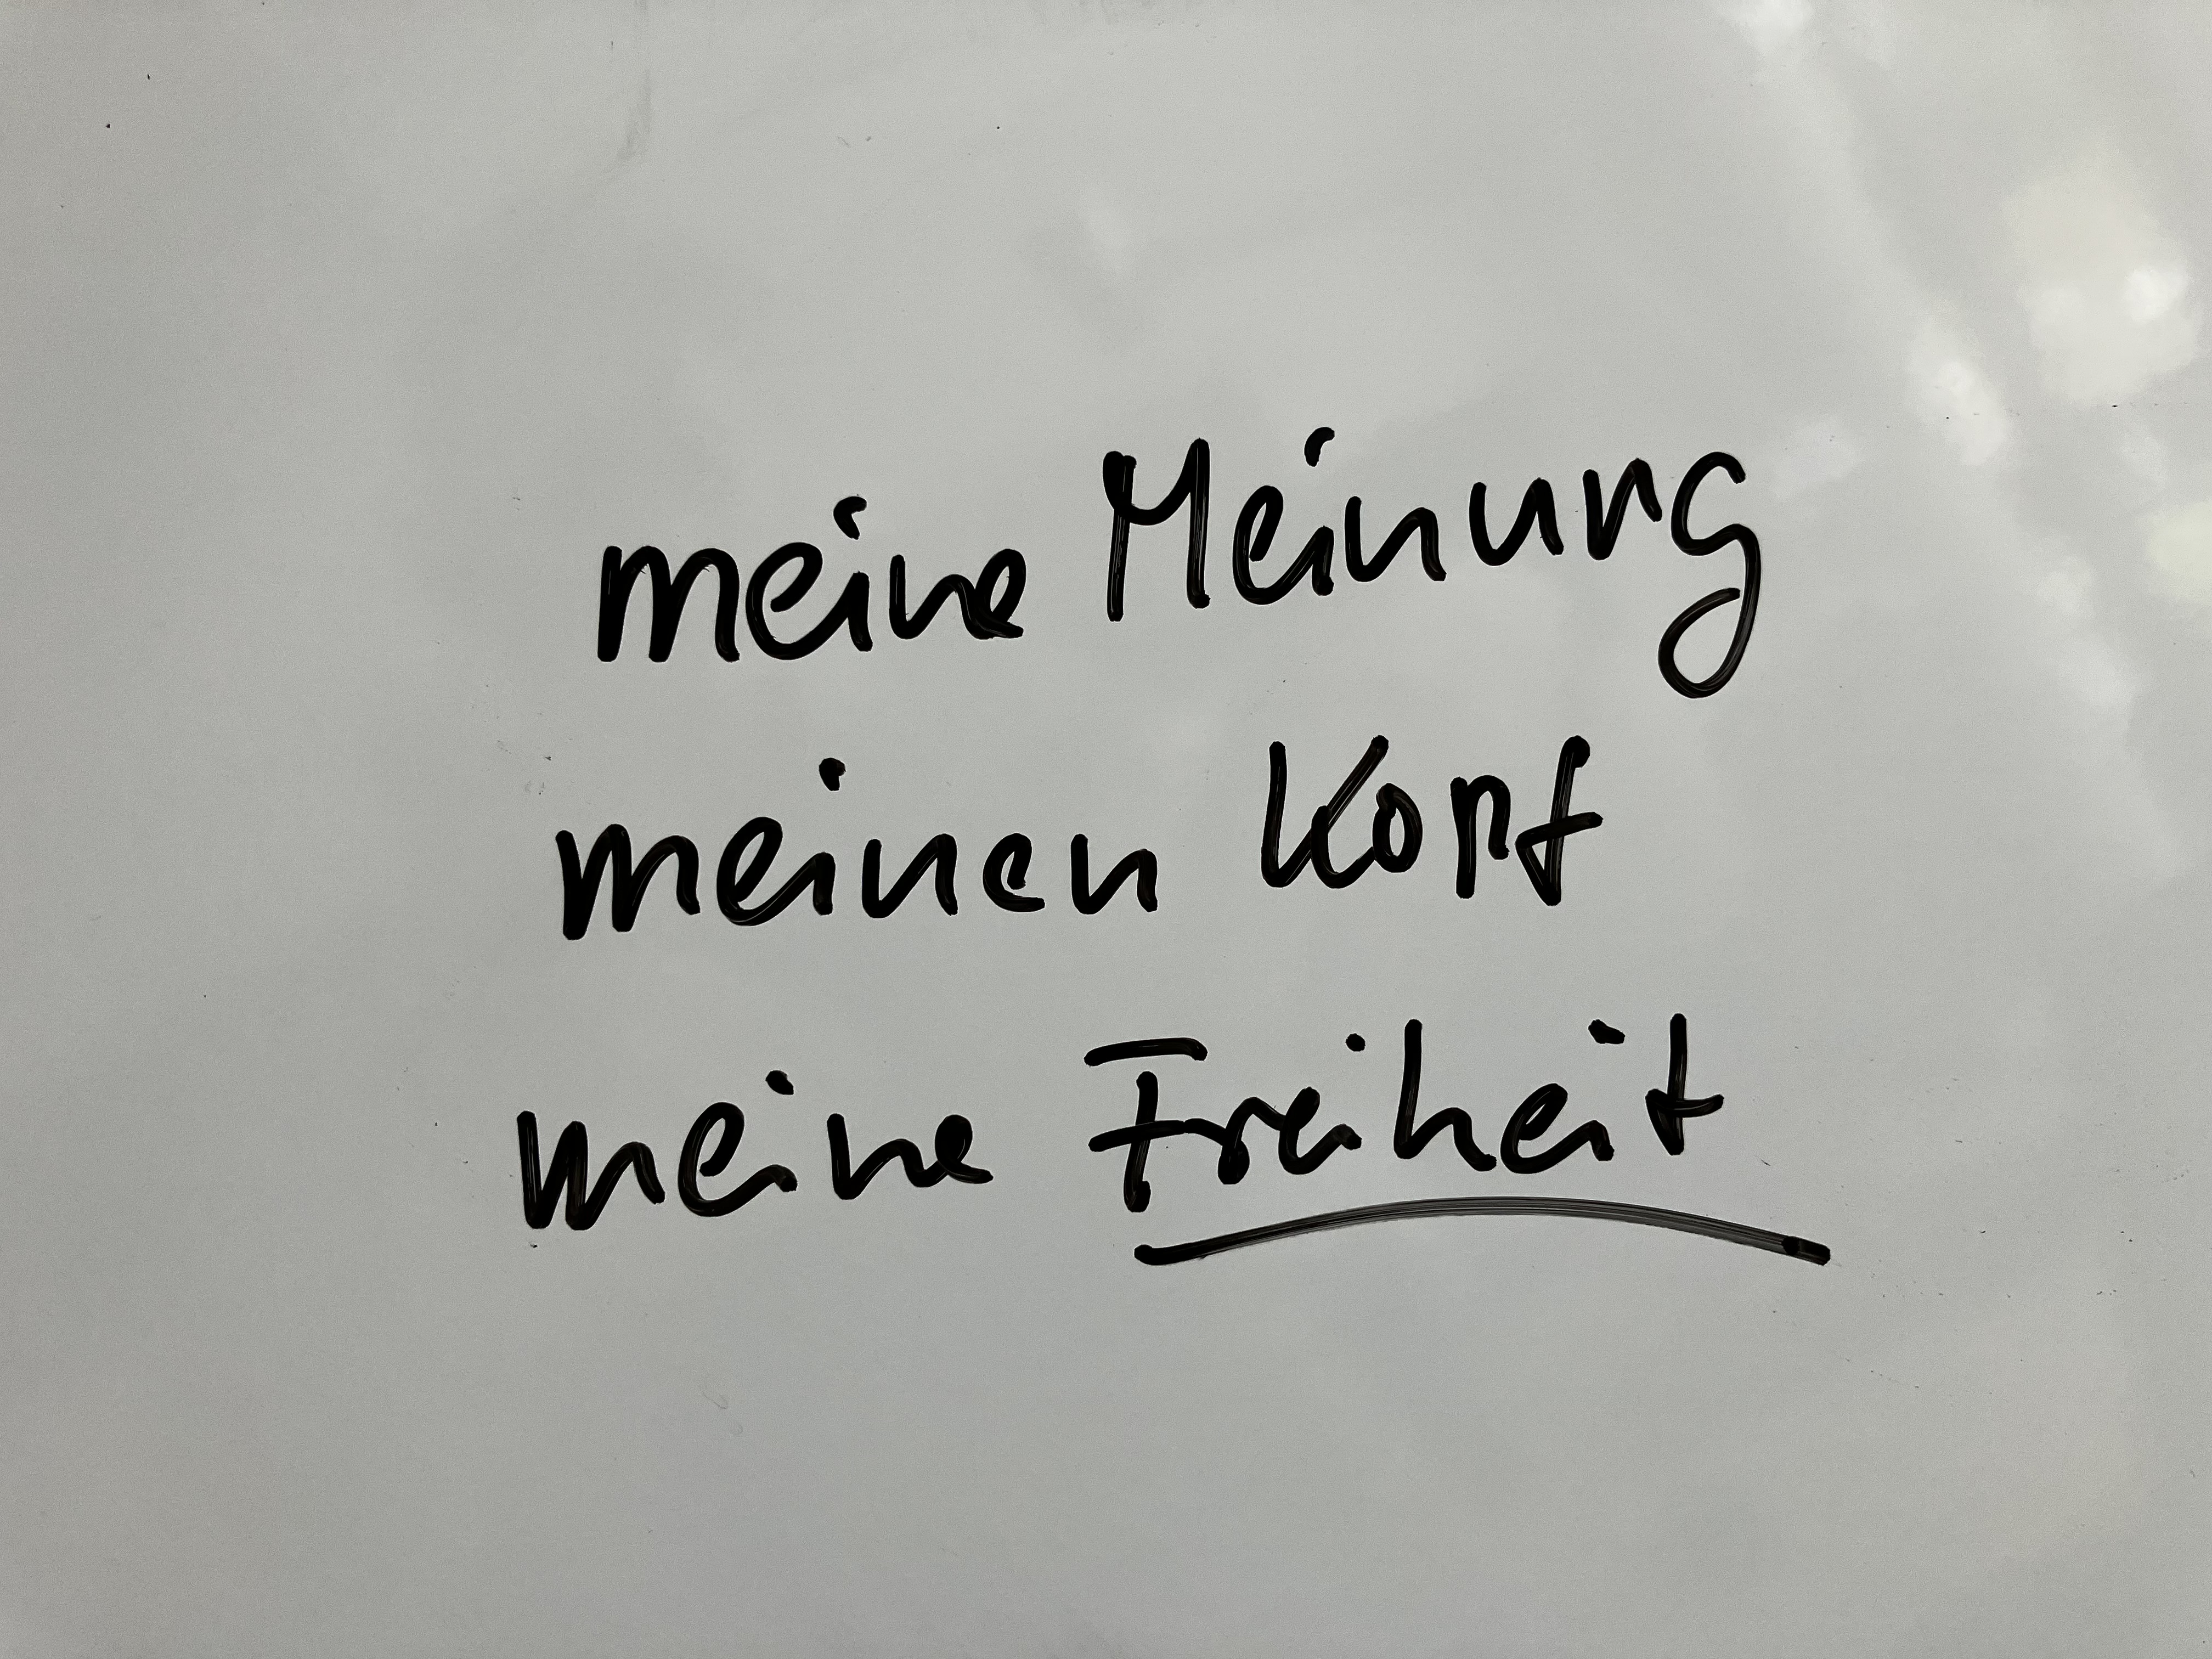 meine Meinung
meinen Kopf
meine Freiheit